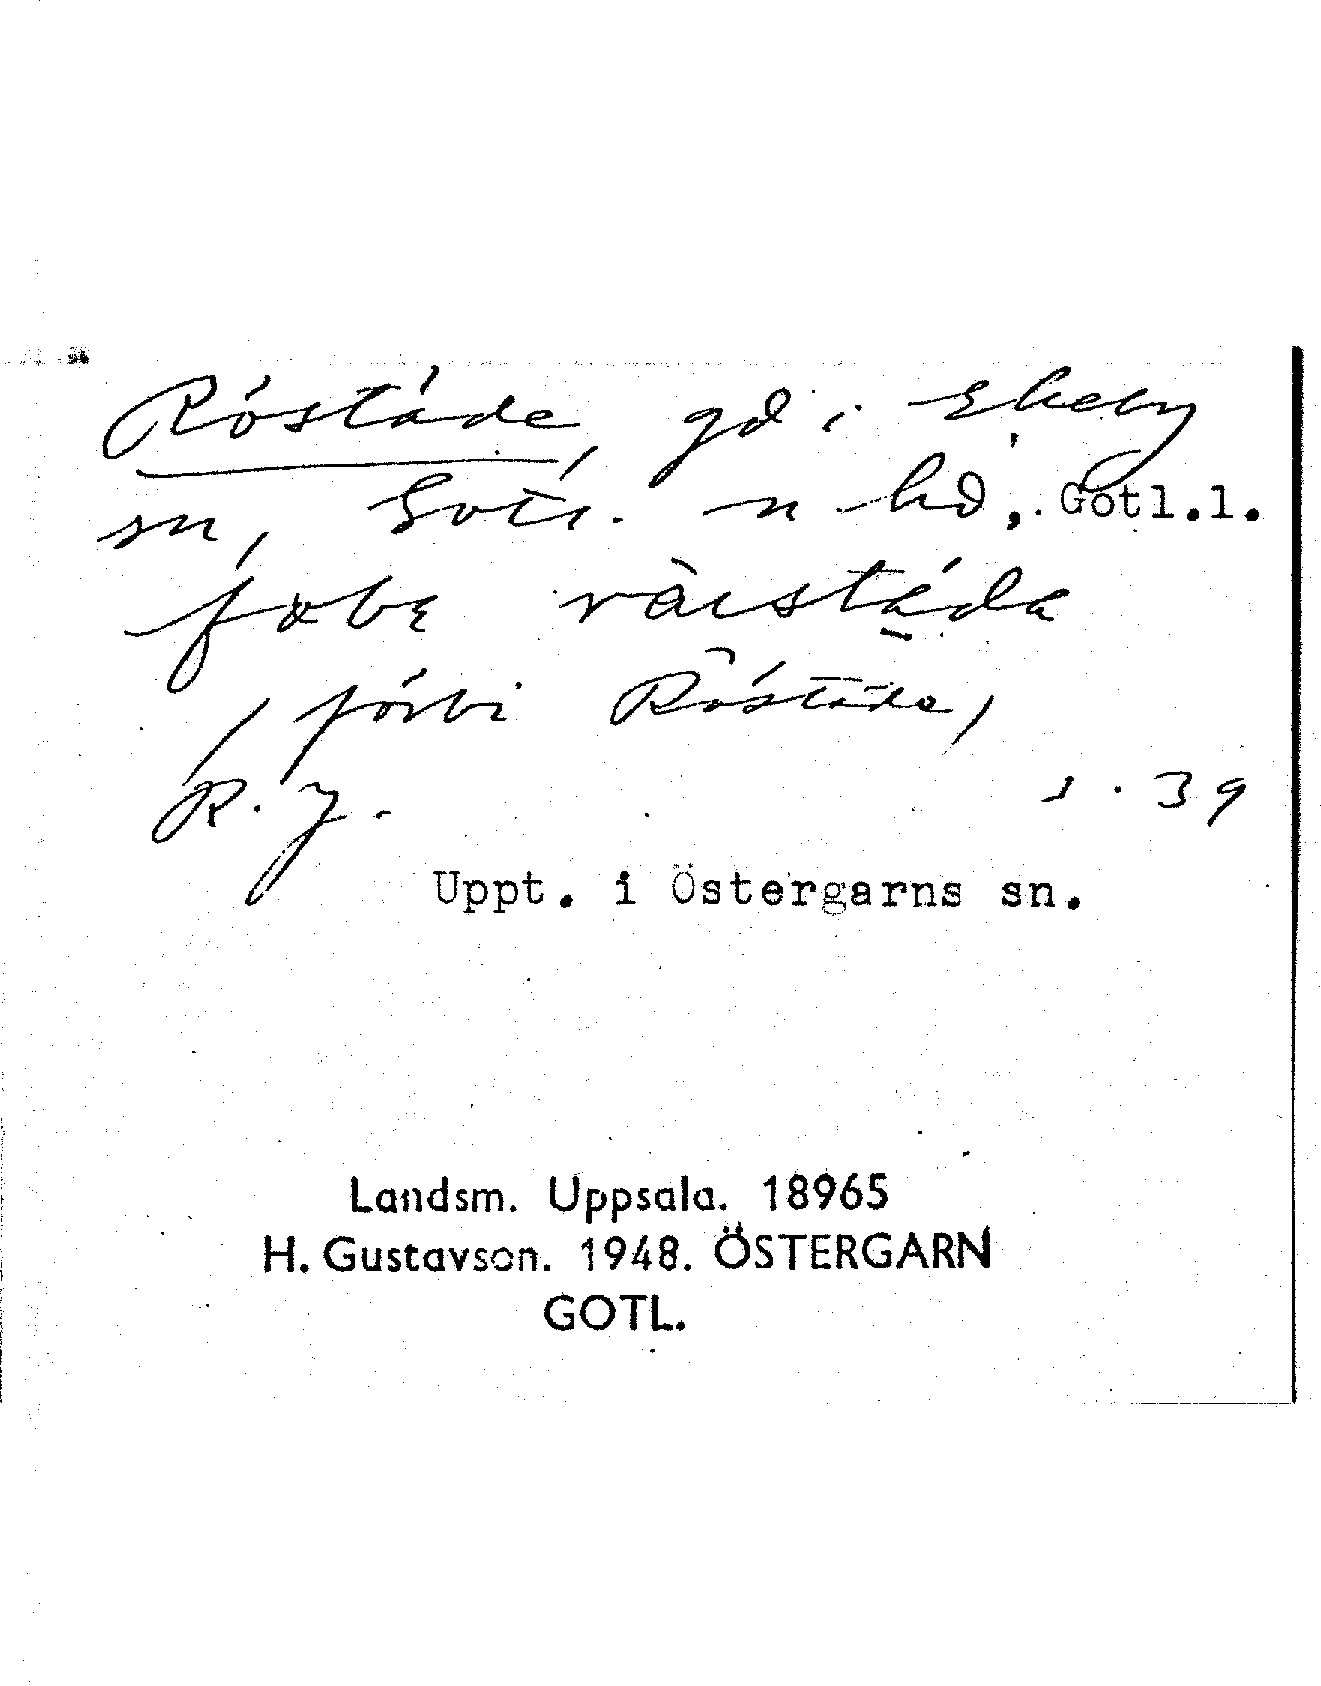 Röstäde, gd i Ekeby
sn, Gotl. n hd, Gotl.l.
(förbi Röstäde)
R. J. s. 39
Uppt. i Östergarns sn.
Landsm. Uppsala. 18965
H. Gustavson. 1948. ÖSTERGARN
GOTL.